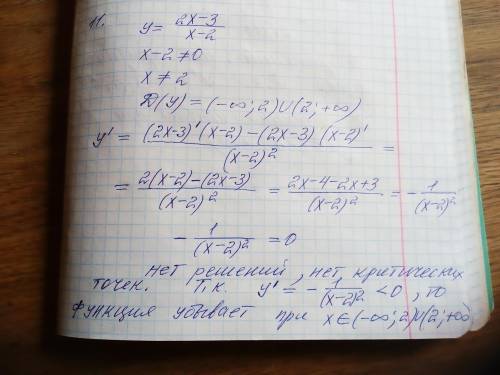 11. y = (2x-3)/(x-2)
x-2 ≠ 0
x ≠ 2
D(y) = (-∞; 2)∪(2; +∞)
y' = ((2x-3)'(x-2) - (2x-3)(x-2)')/(x-2)² =
= (2(x-2) - (2x-3))/(x-2)² = (2x-4-2x+3)/(x-2)² = -1/(x-2)²
-1/(x-2)² = 0
нет решений, нет критических
точек. Т.к. y' = -1/(x-2)² < 0, то
функция убывает при x∈(-∞; 2)∪(2; +∞)